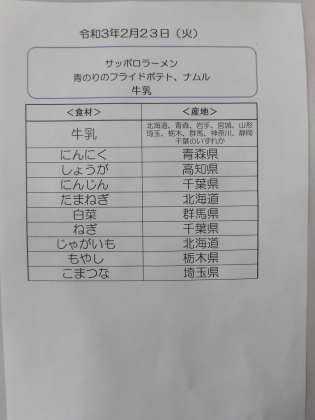 令和3年2月23日（火）
サッポロラーメン
青のりのフライドポテト、ナムル
牛乳
＜食材＞ ＜産地＞
牛乳 北海道、青森、岩手、宮城、山形
埼玉、栃木、群馬、神奈川、静岡
千葉のいずれか
にんにく 青森県
しょうが 高知県
にんじん 千葉県
たまねぎ 北海道
白菜 群馬県
ねぎ 千葉県
じゃがいも 北海道
もやし 栃木県
こまつな 埼玉県